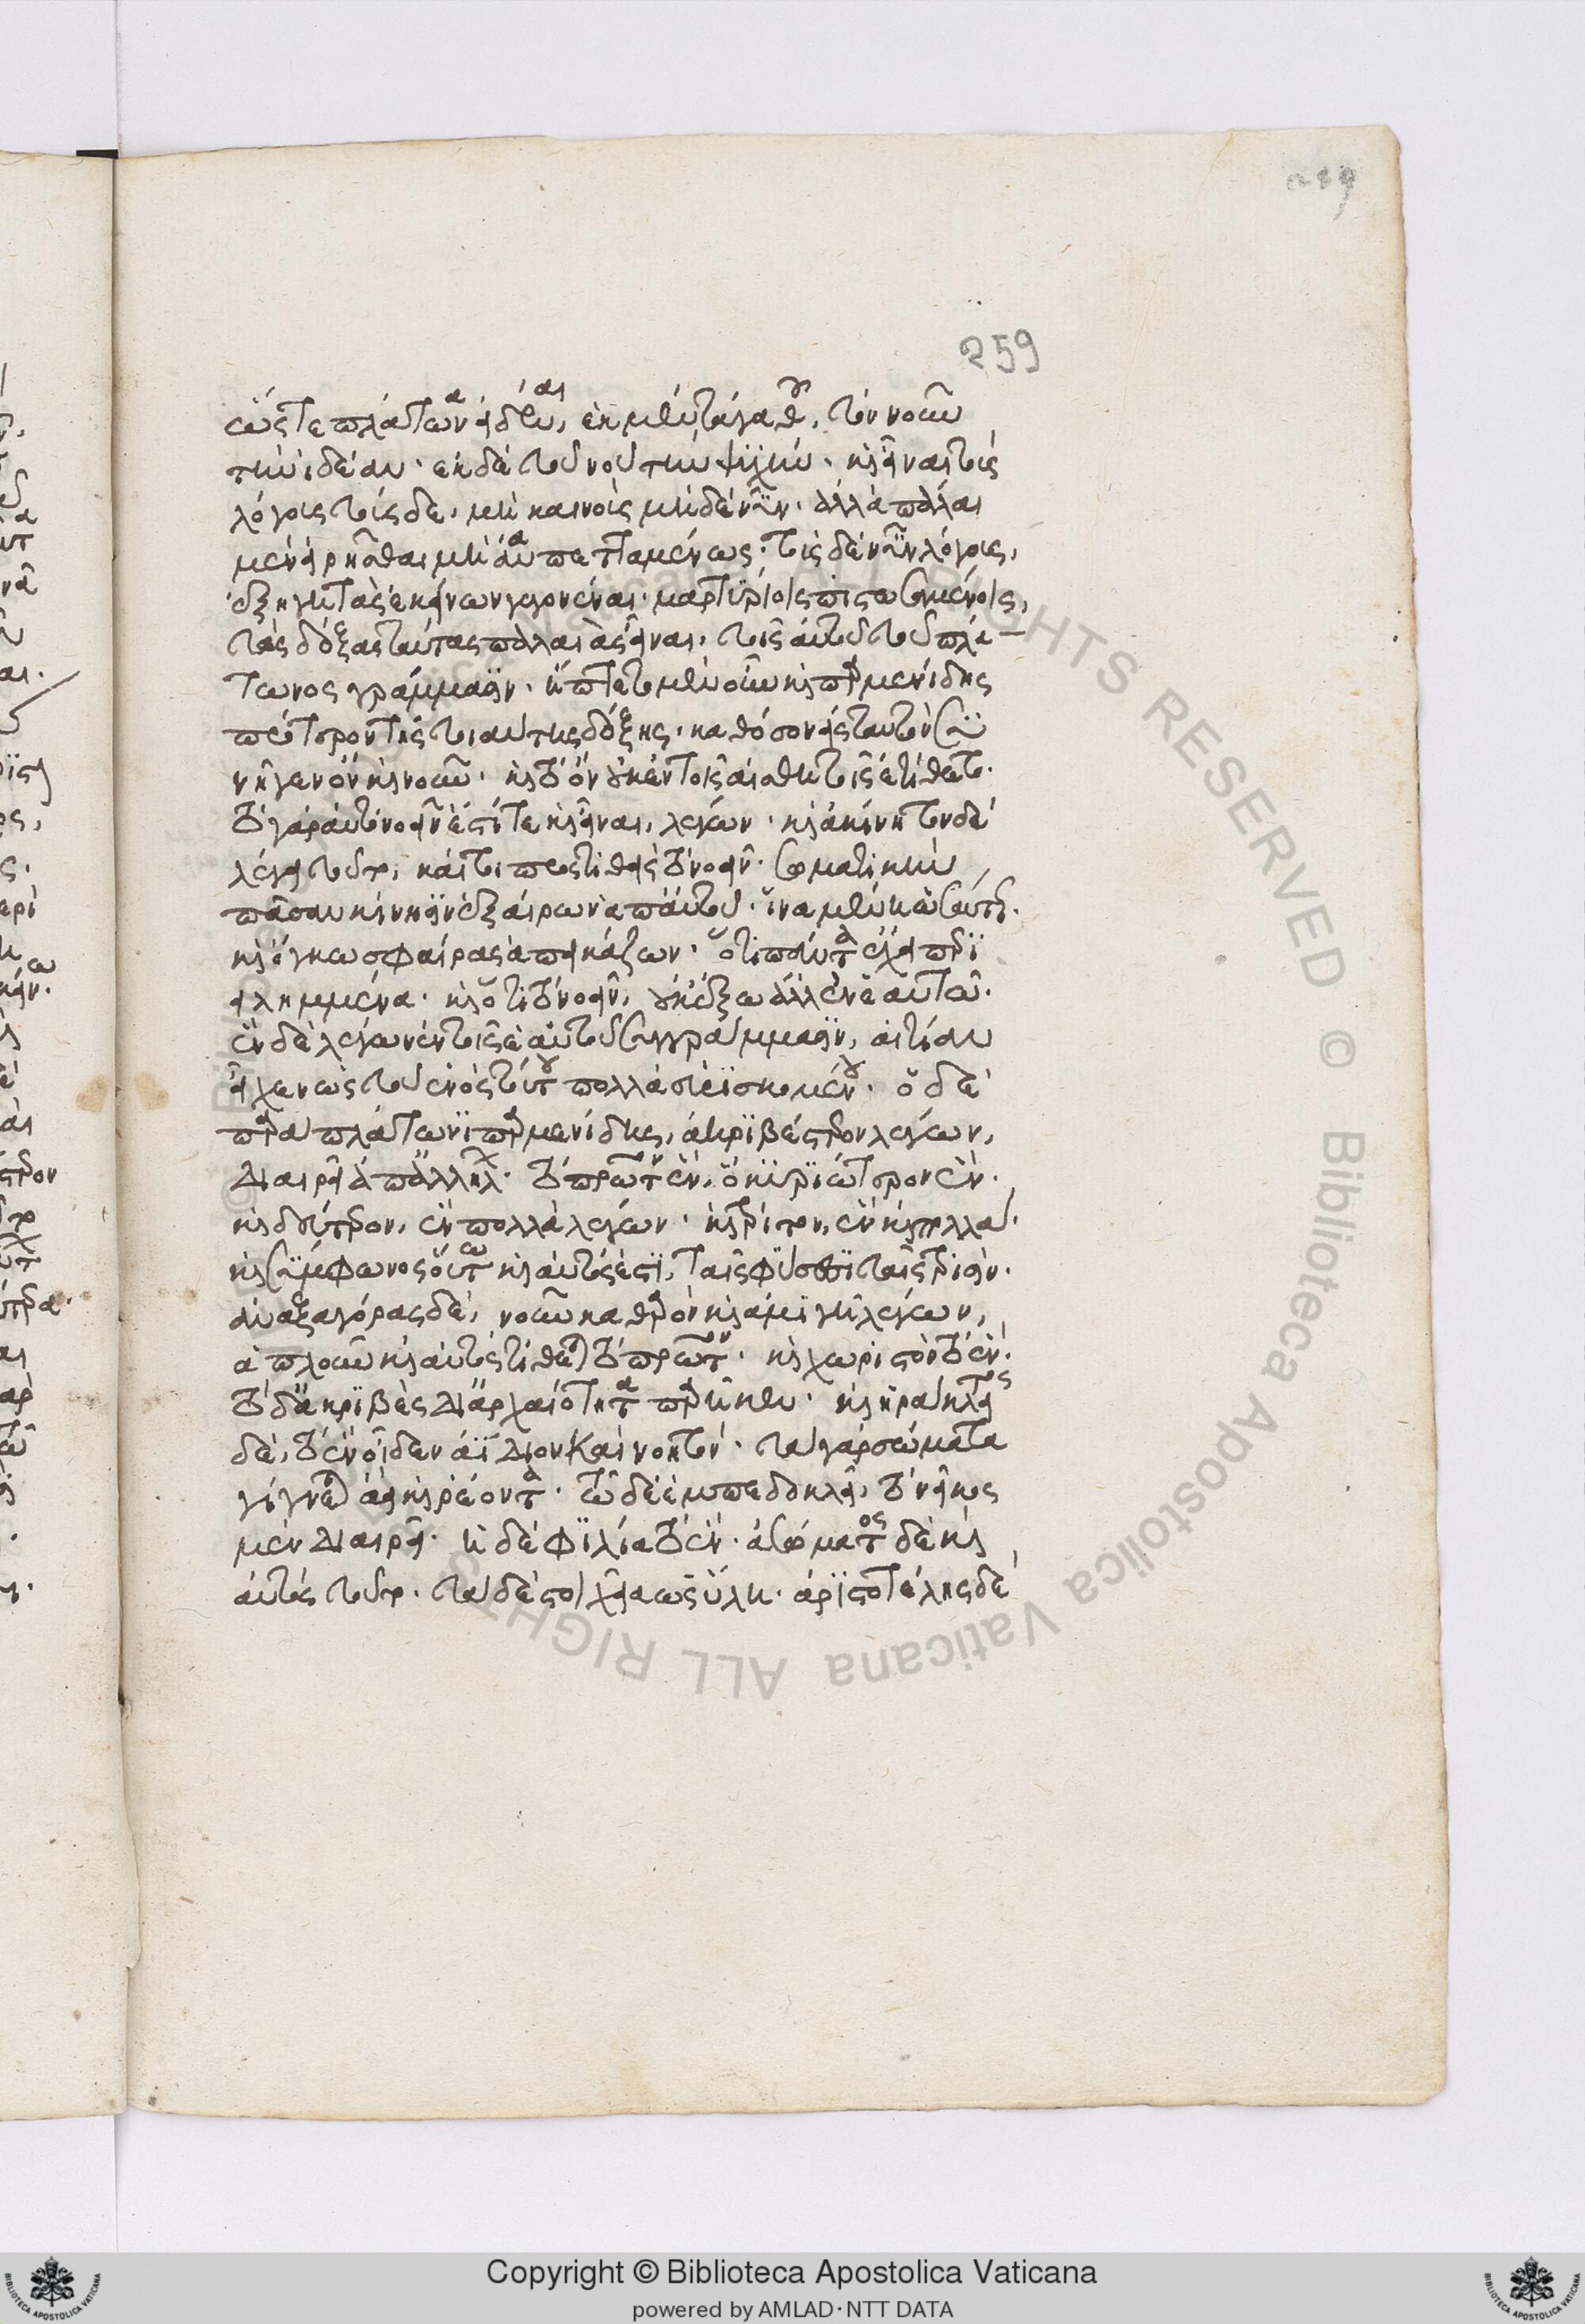 259
259
ὥστε πλάτωνα εἰδέναι, ἐκ μὲν τἀγαθοῦ, τὸν νοῦν
τὴν ἰδέαν· ἐκ δὲ τοῦ νοῦ τὴν ψυχήν· καὶ εἶναι τοὺς
λόγους τούσδε, μὴ καινοὺς μηδὲ νῦν, ἀλλὰ πάλαι
μὲν εἰρῆσθαι μὴ ἀναπεπταμένως· τοὺς δὲ νῦν λόγους,
ἐξηγητὰς ἐκείνων γεγονέναι· μαρτυρίοις πιστωσαμένοις,
τὰς δόξας ταύτας παλαιὰς εἶναι, τοῖς αὐτοῦ τοῦ πλά-
τωνος γράμμασιν· ἥπτετο μὲν οὖν καὶ παρμενίδης
πρότερον τῆς τοιαύτης δόξης· καθόσον εἰς ταυτὸ συ-
νῆγεν ὂν καὶ νοῦν· καὶ τὸ ὂν οὐκ ἐν τοῖς αἰσθητοῖς ἐτίθετο·
τὸ γὰρ αὐτὸ νοεῖν ἐστί τε καὶ εἶναι, λέγων· καὶ ἀκίνητον δὲ
λέγει τοῦτο, καί τοι προστιθεὶς τὸ νοεῖν· σωματικὴν
πᾶσαν κίνησιν ἐξαίρων ἀπ' αὐτοῦ· ἵνα μένῃ ὡσαύτως·
καὶ ὄγκῳ σφαίρας ἀπεικάζων· ὅτι πάντα ἔχει περι
ειλημμένα· καὶ ὅτι τὸ νοεῖν, οὐκ ἔξω ἀλλ' ἐν ἑαυτῷ·
ἓν δὲ λέγων ἐν τοῖς ἑαυτοῦ συγγράμμασιν, αἰτίαν
εἶχεν ὡς τοῦ ἑνὸς τούτου πολλὰ εὑρισκομένου· ὁ δὲ
παρὰ πλάτωνι παρμενίδης, ἀκριβέστερον λέγων,
διαιρεῖ ἀπ' ἀλλήλων· τὸ πρῶτον ἕν, ὃ κυριώτερον ἕν·
καὶ δεύτερον, ἓν πολλὰ λέγων· καὶ τρίτον, ἓν καὶ πολλά·
καὶ σύμφωνος οὕτως καὶ αὐτός ἐστι, ταῖς φύσεσι ταῖς τρισίν·
ἀναξαγόρας δὲ, νοῦν καθαρὸν καὶ ἀμιγῆ λέγων,
ἁπλοῦν καὶ αὐτὸς τίθεται τὸ πρῶτον· καὶ χωριστὸν τὸ ἕν·
τὸ δ' ἀκριβὲς δι' ἀρχαιότητα παρῆκεν· καὶ ἡράκλειτος
δὲ, τὸ ἓν οἶδεν ἀΐδιον καὶ νοητόν· τὰ γὰρ σώματα
γίγνεται ἀεὶ καὶ ῥέοντα· τῷ δὲ ἐμπεδοκλεῖ, τὸ νεῖκος
μὲν διαιρεῖ· ἡ δὲ φιλία τὸ ἕν· ἀσώματος δὲ καὶ
αὐτὸς τοῦτο· τὰ δὲ στοιχεῖα ὡς ὕλη· ἀριστοτέλης δὲ
Copyright © Biblioteca Apostolica Vaticana
powered by AMLAD·NTT DATA